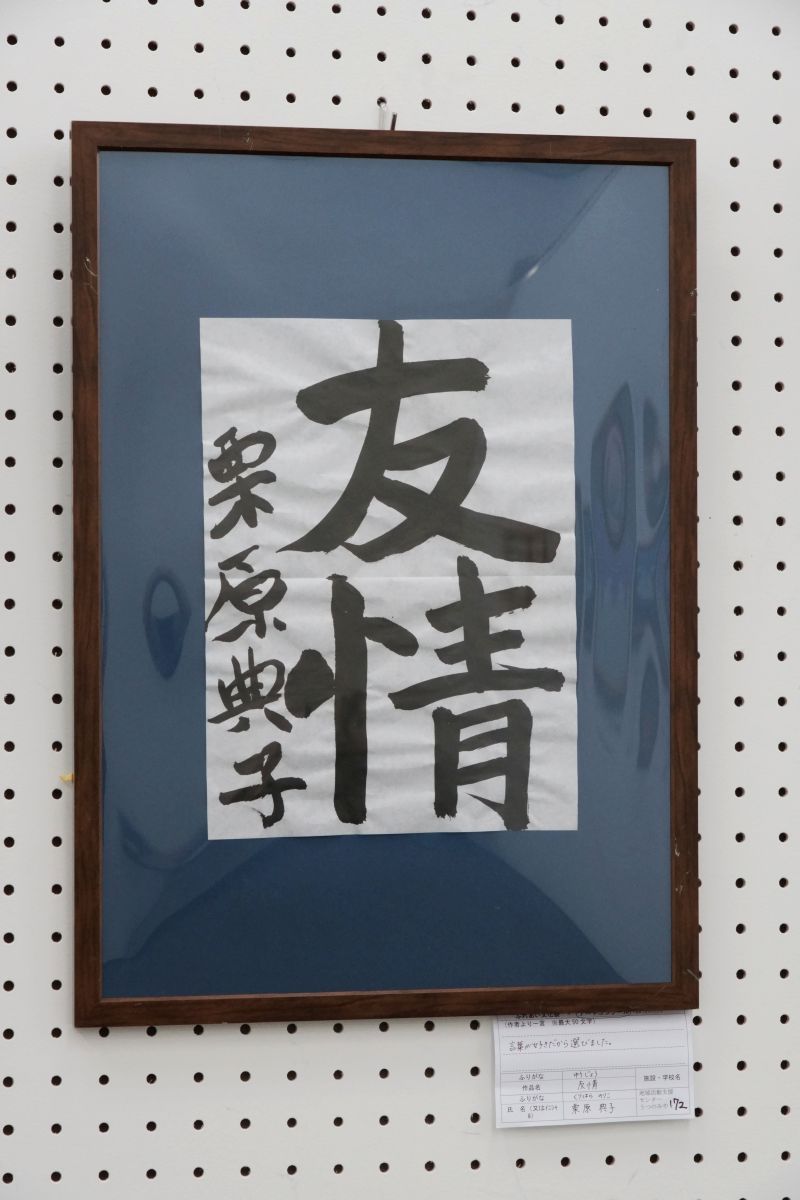 友情
栗原典子
(作者より一言 ※最大50文字)
言葉が好きだから選びました。
ふりがな ゆうじょう
作品名 友情
施設・学校名
ふりがな くりはら のりこ
氏 名 栗原 典子
地域活動支援
センター
172